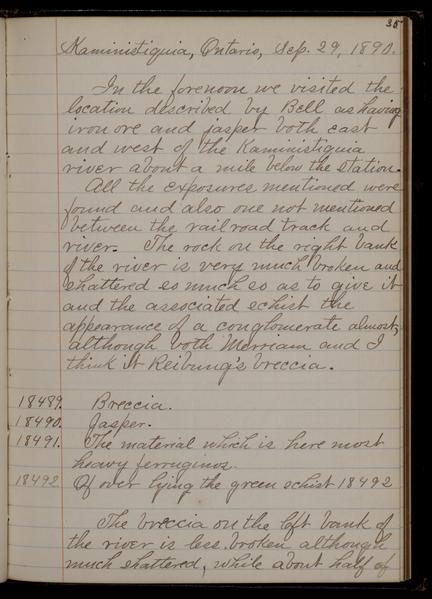 35
Kaministiquia, Ontario, Sep. 29, 1890.
In the forenoon we visited the
location described by Bell as having
iron ore and jasper both east
and west of the Kaministiquia
river about a mile below the station.
All the exposures mentioned were
found and also one not mentioned
between the rail road track and
river. The rock on the right bank
of the river is very much broken and
shattered so much so as to give it
and the associated schist the
appearance of a conglomerate almost,
although both Merriam and I
think it Reibung's breccia.
18489. Breccia.
18490. Jasper.
18491. The material which is here most
heavy ferruginos.
18492. Of over lying the green schist 18492
The breccia on the left bank of
the river is less broken although
much shattered, while about half of